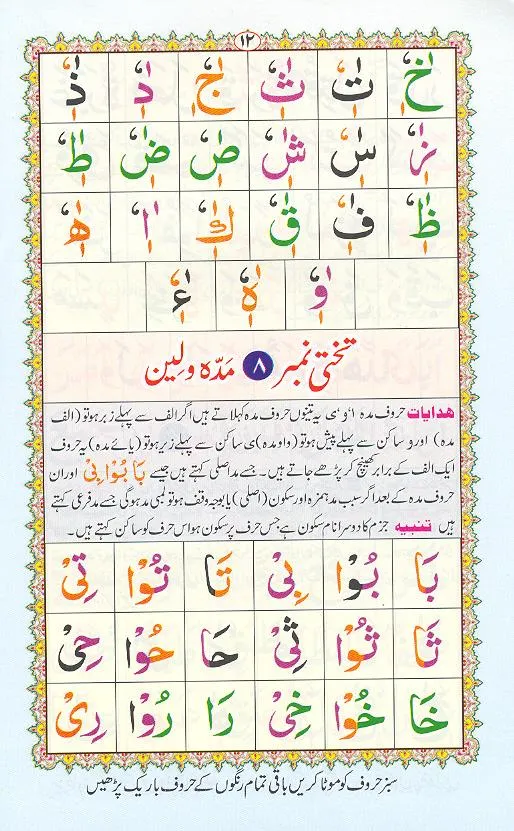 ۱۲
خٰٖٗ تٰٖٗ ثٰٖٗ جٰٖٗ دٰٖٗ ذٰٖٗ
زٰٖٗ سٰٖٗ شٰٖٗ صٰٖٗ ضٰٖٗ طٰٖٗ
ظٰٖٗ فٰٖٗ قٰٖٗ كٰٖٗ اٰٖٗ ھٰٖٗ
وٰٖٗ هٰٖٗ ءٰٖٗ
تختی نمبر ۸ مَدّہ و لِین
ھدایات حروف مدہ ا، و، ی یہ تینوں حروف مدہ کہلاتے ہیں اگر الف سے پہلے زبر ہو تو (الف
مدہ) اور و ساکن سے پہلے پیش ہو تو (واو مدہ) ی ساکن سے پہلے زیر ہو تو (یائے مدہ) یہ حروف
ایک الف کے برابر کھینچ کر پڑھے جاتے ہیں۔ جسے مد اصلی کہتے ہیں جیسے بَا بُوْا بِیْ اور ان
حروف مدہ کے بعد اگر سبب مد ہمزہ اور سکون (اصلی) یا بوجہ وقف ہو تو لمبی مد ہوگی جسے مد فرعی کہتے
ہیں تنبیه جزم کا دوسرا نام سکون ہے جس حرف پر سکون ہو اس حرف کو ساکن کہتے ہیں۔
بَا بُوْا بِیْ تَا تُوْا تِیْ
ثَا ثُوْا ثِیْ حَا حُوْا حِیْ
خَا خُوْا خِیْ رَا رُوْا رِیْ
سبز حروف کو موٹا کریں باقی تمام رنگوں کے حروف باریک پڑھیں